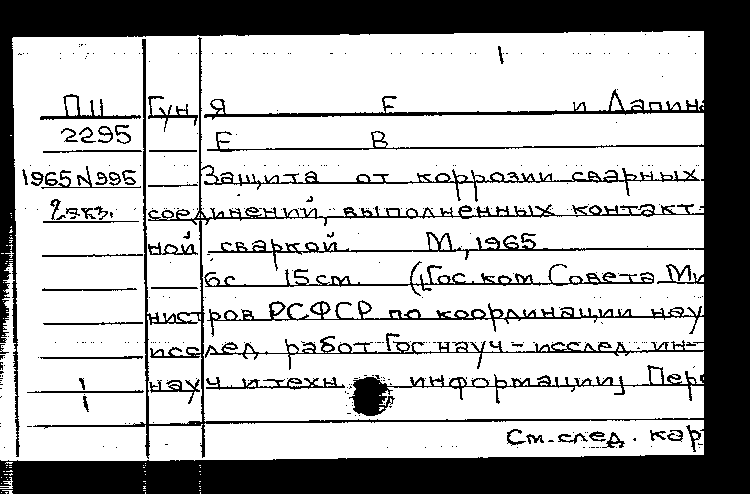 П11 Гун, Я Е и Лапина
2295 Е В
1965 N995 Защита от коррозии сварных
2 экз. соединений, выполненных контакт-
ной сваркой М., 1965
6с 15 см. ([Гос. ком Совета Ми
нистров РСФСР по координации науч
исслед. работ. Гос науч-исслед. ин-
науч и техн. информации] Пере
См. след. кар